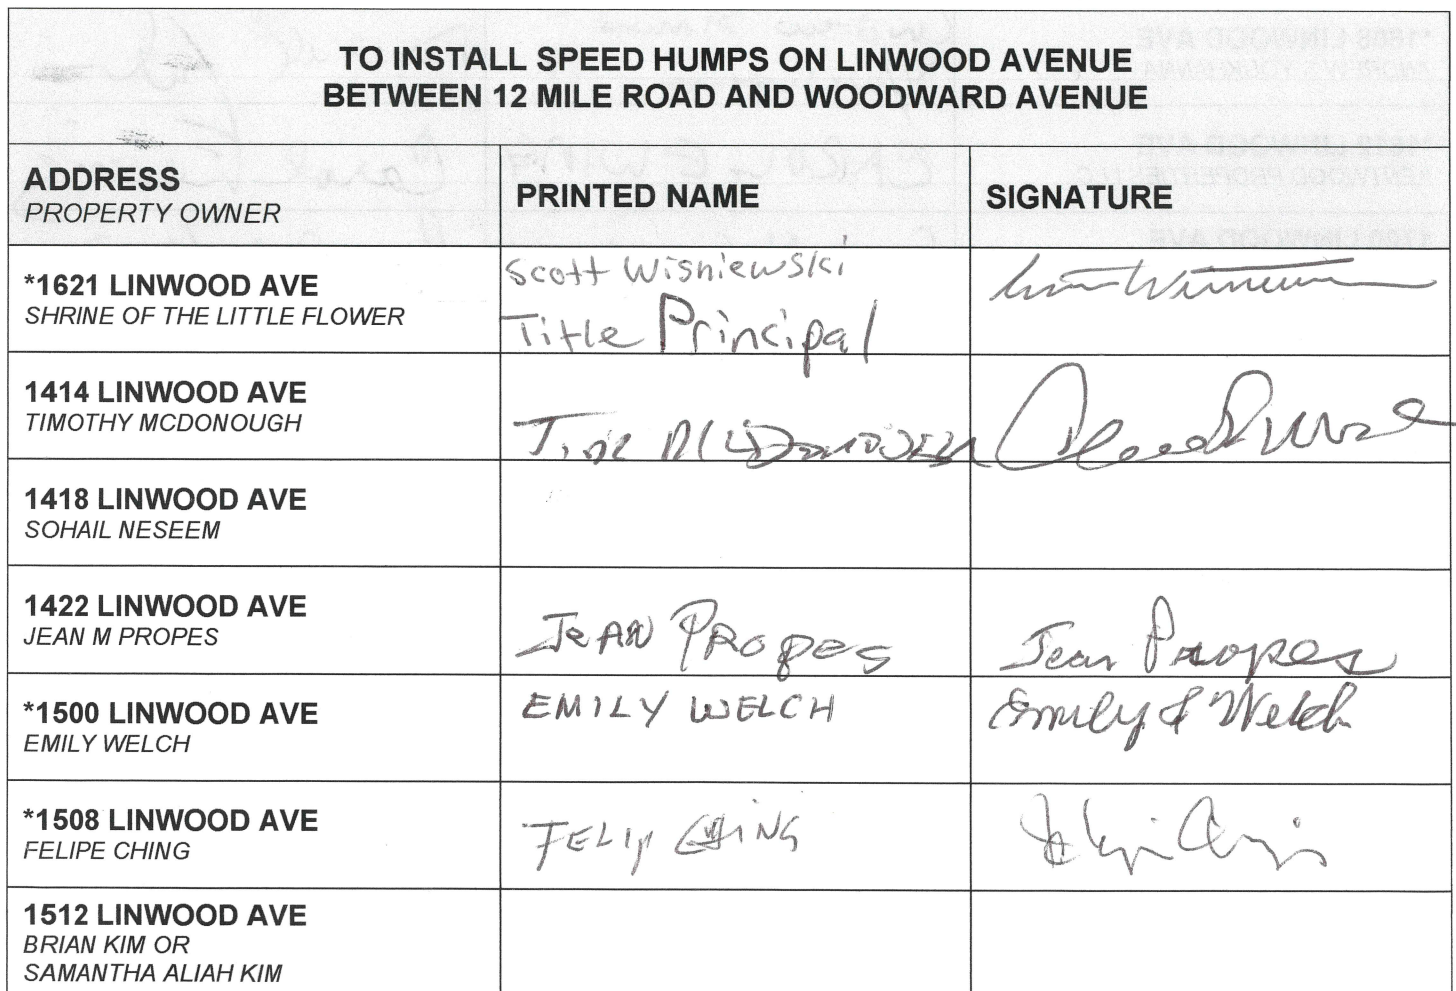 TO INSTALL SPEED HUMPS ON LINWOOD AVENUE
BETWEEN 12 MILE ROAD AND WOODWARD AVENUE
ADDRESS
PROPERTY OWNER
PRINTED NAME
SIGNATURE
*1621 LINWOOD AVE
SHRINE OF THE LITTLE FLOWER
Scott Wisniewski
Title Principal
1414 LINWOOD AVE
TIMOTHY MCDONOUGH
1418 LINWOOD AVE
SOHAIL NESEEM
1422 LINWOOD AVE
JEAN M PROPES
JEAN PROPES
Jean Propes
*1500 LINWOOD AVE
EMILY WELCH
EMILY WELCH
Emily J Welch
*1508 LINWOOD AVE
FELIPE CHING
FELIP CHING
1512 LINWOOD AVE
BRIAN KIM OR
SAMANTHA ALIAH KIM